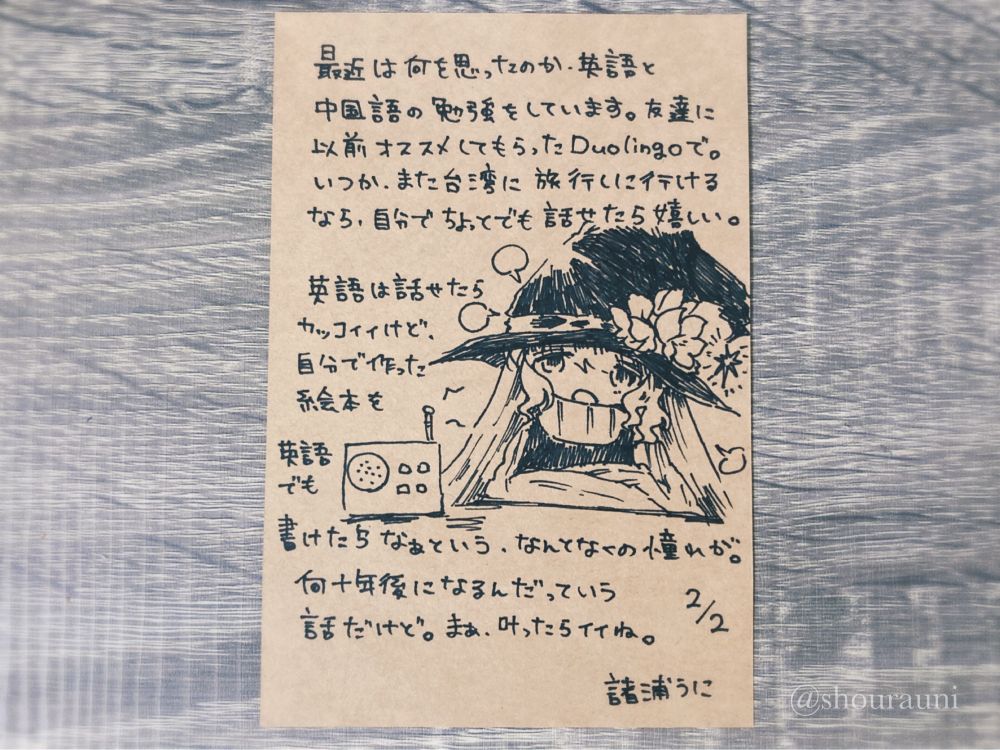 最近は何を思ったのか、英語と
中国語の勉強をしています。友達に
以前オススメしてもらったDuolingoで。
いつか、また台湾に旅行しに行ける
なら、自分でちょっとでも話せたら嬉しい。
英語は話せたら
カッコイイけど、
自分で作った
絵本を
英語
でも
書けたらなぁという、なんとなくの憧れが。
何十年後になるんだっていう
話だけど。まぁ、叶ったらイイね。
2/2
諸浦うに
@shourauni